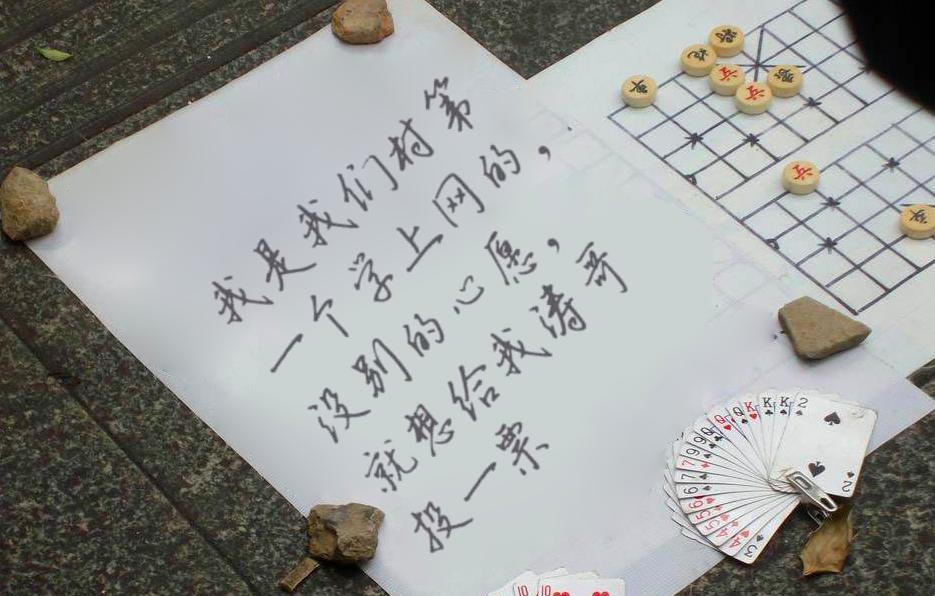 我是我们村第
一个学上网的，
没别的心愿，
就想给我涛哥
投一票
兵
兵
兵
2
K
K
K
Q
Q
Q
9
9
7
7
6
6
5
5
4
4
3
2
10
10